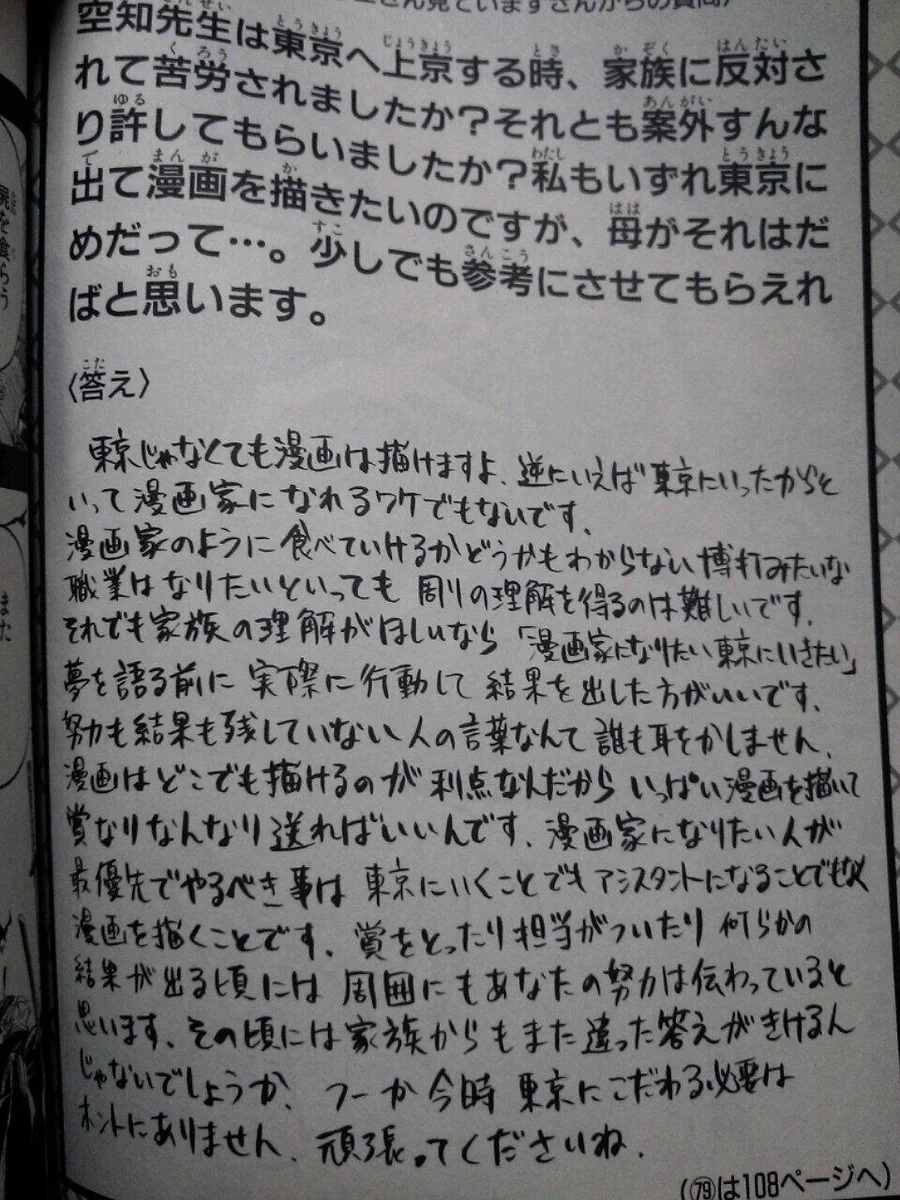 生さん見ていますさんからの質問〉
空知先生は東京へ上京する時、家族に反対さ
れて苦労されましたか?それとも案外すんな
り許してもらいましたか?私もいずれ東京に
出て漫画を描きたいのですが、母がそれはだ
めだって…。少しでも参考にさせてもらえれ
ばと思います。
〈答え〉
東京じゃなくても漫画は描けますよ、逆にいえば東京にいったからと
いって漫画家になれるワケでもないです、
漫画家のように食べていけるかどうかもわからない博打みたいな
職業はなりたいといっても周りの理解を得るのは難しいです、
それでも家族の理解がほしいなら「漫画家になりたい東京にいきたい」
夢を語る前に実際に行動して結果を出した方がいいです、
努力も結果も残していない人の言葉なんて誰も耳をかしません、
漫画はどこでも描けるのが利点なんだからいっぱい漫画を描いて
賞なりなんなり送ればいいんです、漫画家になりたい人が
最優先でやるべき事は東京にいくことでもアシスタントになることでもなく
漫画を描くことです、賞をとったり担当がついたり何らかの
結果が出る頃には周囲にもあなたの努力は伝わっていると
思います、その頃には家族からもまた違った答えがきけるん
じゃないでしょうか、つーか今時東京にこだわる必要は
ホントにありません、頑張ってくださいね、
(79は108ページへ)
屍を喰らう
また